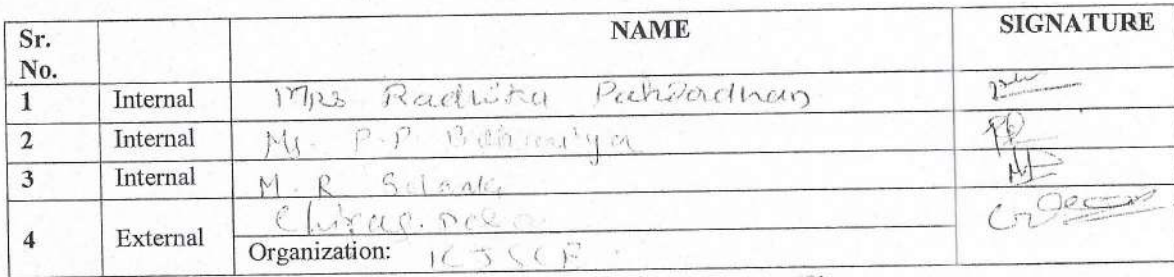 Sr. No. NAME SIGNATURE
1 Internal Mrs Radhika Patwardhan
2 Internal Mr. P.P.
3 Internal M. R
4 External Chirag.
Organization: KJSCE